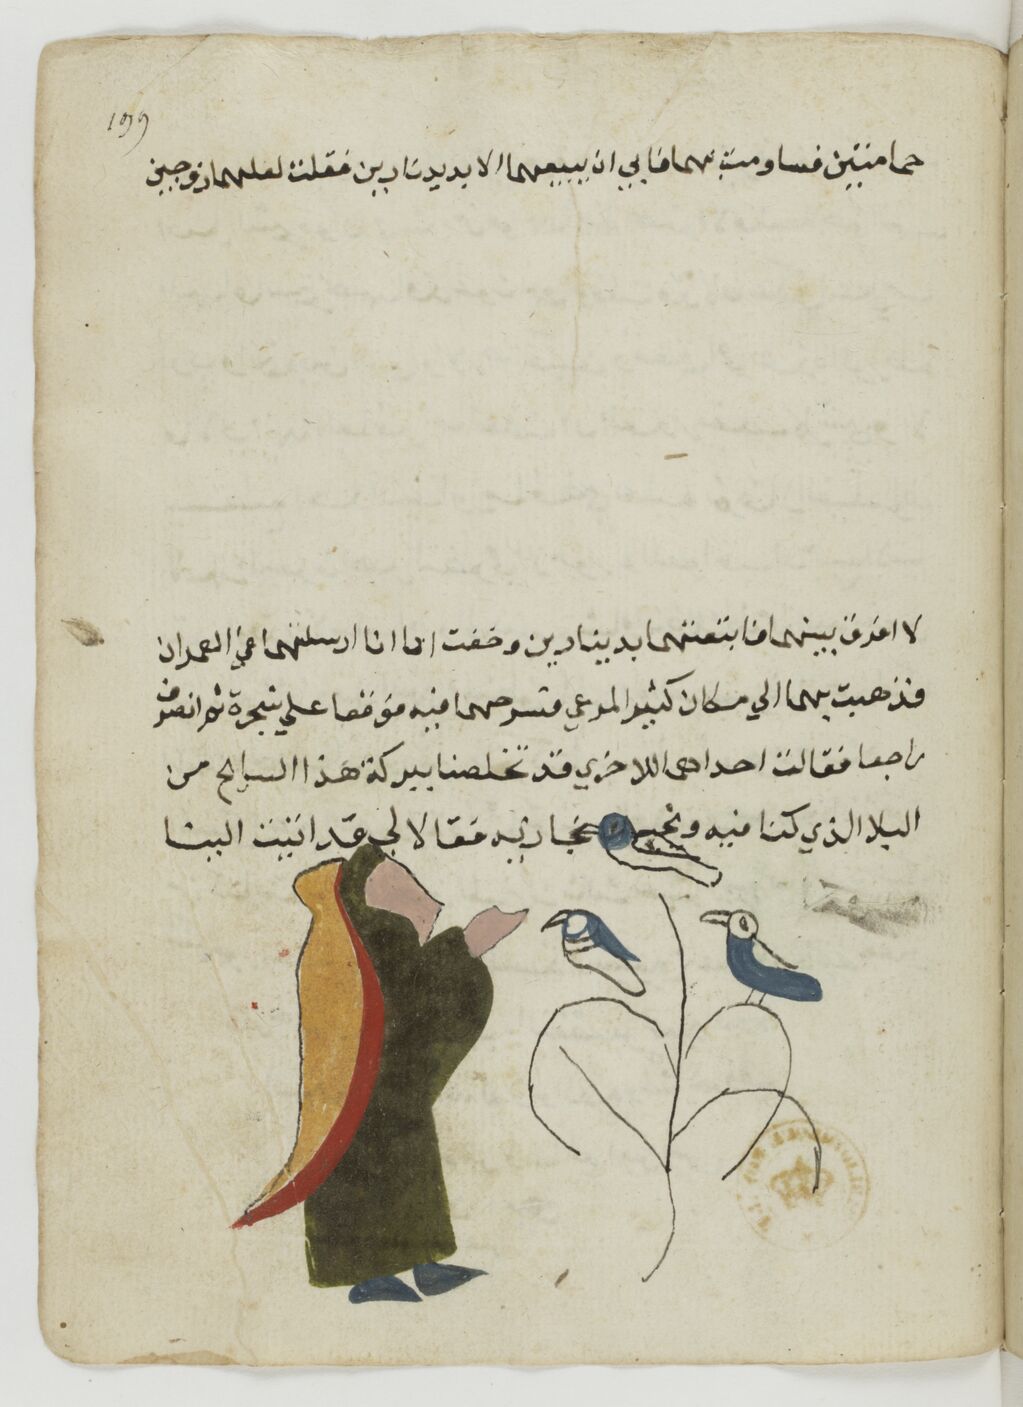 ١٥٩
حمامتين فساومت بهما فابي ان يبيعهما الا بدينارين فقلت لعلهما زوجين
لا افرق بينهما فابتعتهما بدينارين وخفت ان انا ارسلتهما في العمران
فذهبت بهما الي مكان كثير المرعي فسرحهما فيه فوقفا علي شجرة ثم انصرف
راجعا فقالت احداهما للاخري قد تخلصنا ببركة هذا السايح من
البلا الذي كنا فيه ونحن نجازيه فقالا لي قد اتيت الينا